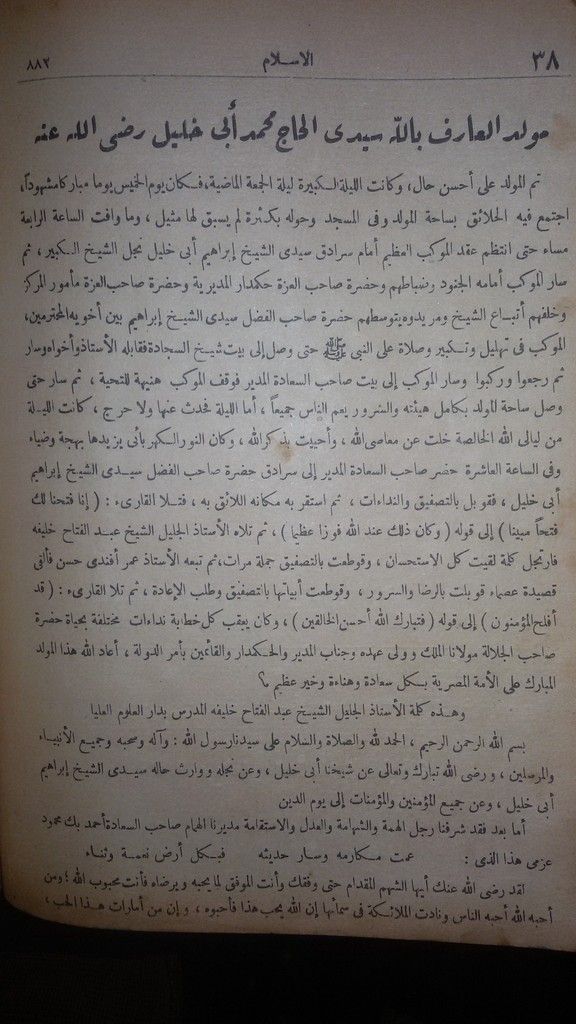 ٣٨ الاسلام ٨٨٢
مولد العارف بالله سيدى الحاج محمد أبى خليل رضى الله عنه
تم المولد على أحسن حال، وكانت الليلة الكبيرة ليلة الجمعة الماضية، فكان يوم الخميس يوما مباركا مشهوداً،
اجتمع فيه الخلائق بساحة المولد وفى المسجد وحوله بكثرة لم يسبق لها مثيل ، وما وافت الساعة الرابعة
مساء حتى انتظم عقد الموكب العظيم أمام سرادق سيدى الشيخ إبراهيم أبى خليل نجل الشيخ الكبير ، ثم
سار الموكب أمامه الجنود وضباطهم وحضرة صاحب العزة حكمدار المديرية وحضرة صاحب العزة مأمور المركز
وخلفهم أتباع الشيخ ومريدوه يتوسطهم حضرة صاحب الفضل سيدى الشيخ إبراهيم بين أخويه المحترمين،
الموكب فى تهليل وتكبير وصلاة على النبى ﷺ حتى وصل إلى بيت شيخ السجادة فقابله الأستاذ وأخواه وسار
ثم رجعوا وركبوا وسار الموكب إلى بيت صاحب السعادة المدير فوقف الموكب هنيهة للتحية ، ثم سار حتى
وصل ساحة المولد بكامل هيئته والسرور يعم الناس جميعاً ، أما الليلة فحدث عنها ولا حرج ، كانت الليلة
من ليالى الله الخالصة خلت عن معاصى الله ، وأحييت بذكر الله ، وكان النور الكهربائى يزيدها بهجة وضياء
وفى الساعة العاشرة حضر صاحب السعادة المدير إلى سرادق حضرة صاحب الفضل سيدى الشيخ إبراهيم
أبى خليل ، فقوبل بالتصفيق والنداءات ، ثم استقر به مكانه اللائق به ، فتلا القارىء : ( إنا فتحنا لك
فتحاً مبينا ) إلى قوله ( وكان ذلك عند الله فوزا عظيما ) ، ثم تلاه الأستاذ الجليل الشيخ عبد الفتاح خليفه
فارتجل كلمة لقيت كل الاستحسان ، وقوطعت بالتصفيق جملة مرات، ثم تبعه الأستاذ عمر أفندى حسن فألقى
قصيدة عصماء قوبلت بالرضا والسرور ، وقوطعت أبياتها بالتصفيق وطلب الإعادة ، ثم تلا القارىء : ( قد
أفلح المؤمنون ) إلى قوله ( فتبارك الله أحسن الخالقين ) ، وكان يعقب كل خطابة نداءات مختلفة بحياة حضرة
صاحب الجلالة مولانا الملك وولى عهده وجناب المدير والحكمدار والقائمين بأمر الدولة ، أعاد الله هذا المولد
المبارك على الأمة المصرية بكل سعادة وهناءة وخير عظيم ؟
وهذه كلمة الأستاذ الجليل الشيخ عبد الفتاح خليفه المدرس بدار العلوم العليا
بسم الله الرحمن الرحيم ، الحمد لله والصلاة والسلام على سيدنا رسول الله : وآله وصحبه وجميع الأنبياء
والمرسلين ، ورضى الله تبارك وتعالى عن شيخنا أبى خليل ، وعن نجله ووارث حاله سيدى الشيخ إبراهيم
أبى خليل ، وعن جميع المؤمنين والمؤمنات إلى يوم الدين
أما بعد فقد شرفنا رجل الهمة والشهامة والعدل والاستقامة مديرنا الهمام صاحب السعادة أحمد بك محمود
عزمى هذا الذى : عمت مكارمه وسار حديثه فبكل أرض نعمة وثناء
لقد رضى الله عنك أيها الشهم المقدام حتى وفقك وأنت الموفق لما يحبه ويرضاه فأنت محبوب الله ؛ ومن
أحبه الله أحبه الناس ونادت الملائكة فى سمائها إن الله يحب هذا فأحبوه ، وإن من أمارات هذا الحب ،